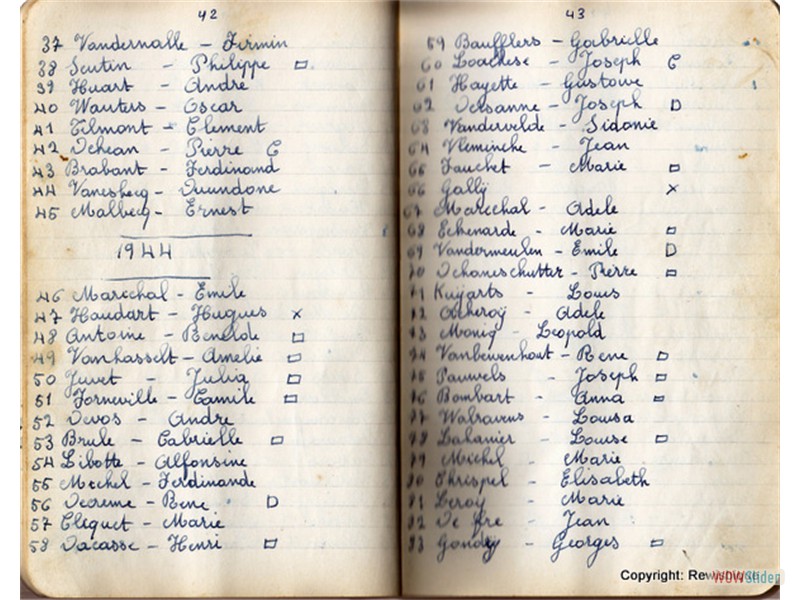 42
37 Vandernalle - Firmin
38 Scutin - Philippe □
39 Huart - Andre
40 Wauters - Oscar
41 Tilmont - Clement
42 Dehean - Pierre C
43 Brabant - Ferdinand
44 -
45 Malbecq - Ernest
1944
46 Marechal - Emile
47 Houdart - Hugues x
48 Antoine - Benelde □
49 Vanhasselt - Amelie □
50 Juvet - Julia □
51 Forneville - Camile □
52 Devos - Andre
53 Brule - Gabrielle □
54 Libotte - Alfonsine
55 Mechel - Ferdinande
56 - Rene D
57 Cliquet - Marie
58 Dacasse - Henri □
43
59 Baufflers - Gabrielle
60 - Joseph C
61 Hayette - Gustave
62 Delsanne - Joseph D
63 Vandervelde - Sidonie
64 Vleminche - Jean
65 Fauchet - Marie □
66 Gallÿ x
67 Marechal - Adele
68 Echenarde - Marie □
69 Vandermeulen - Emile D
70 Dehaneschutter - Pierre □
71 Kuÿarts - Louis
72 - Adele
73 Moniq - Leopold
74 Vanbevenhout - Rene □
75 Pauwels - Joseph □
76 Bombart - Anna □
77 Walravens - Louisa
78 Lalanier - Louise □
79 Michel - Marie
80 Chrispel - Elisabeth
81 Leroy - Marie
82 De - Jean
83 Gondry - Georges □
Copyright: Re
WOWSlider